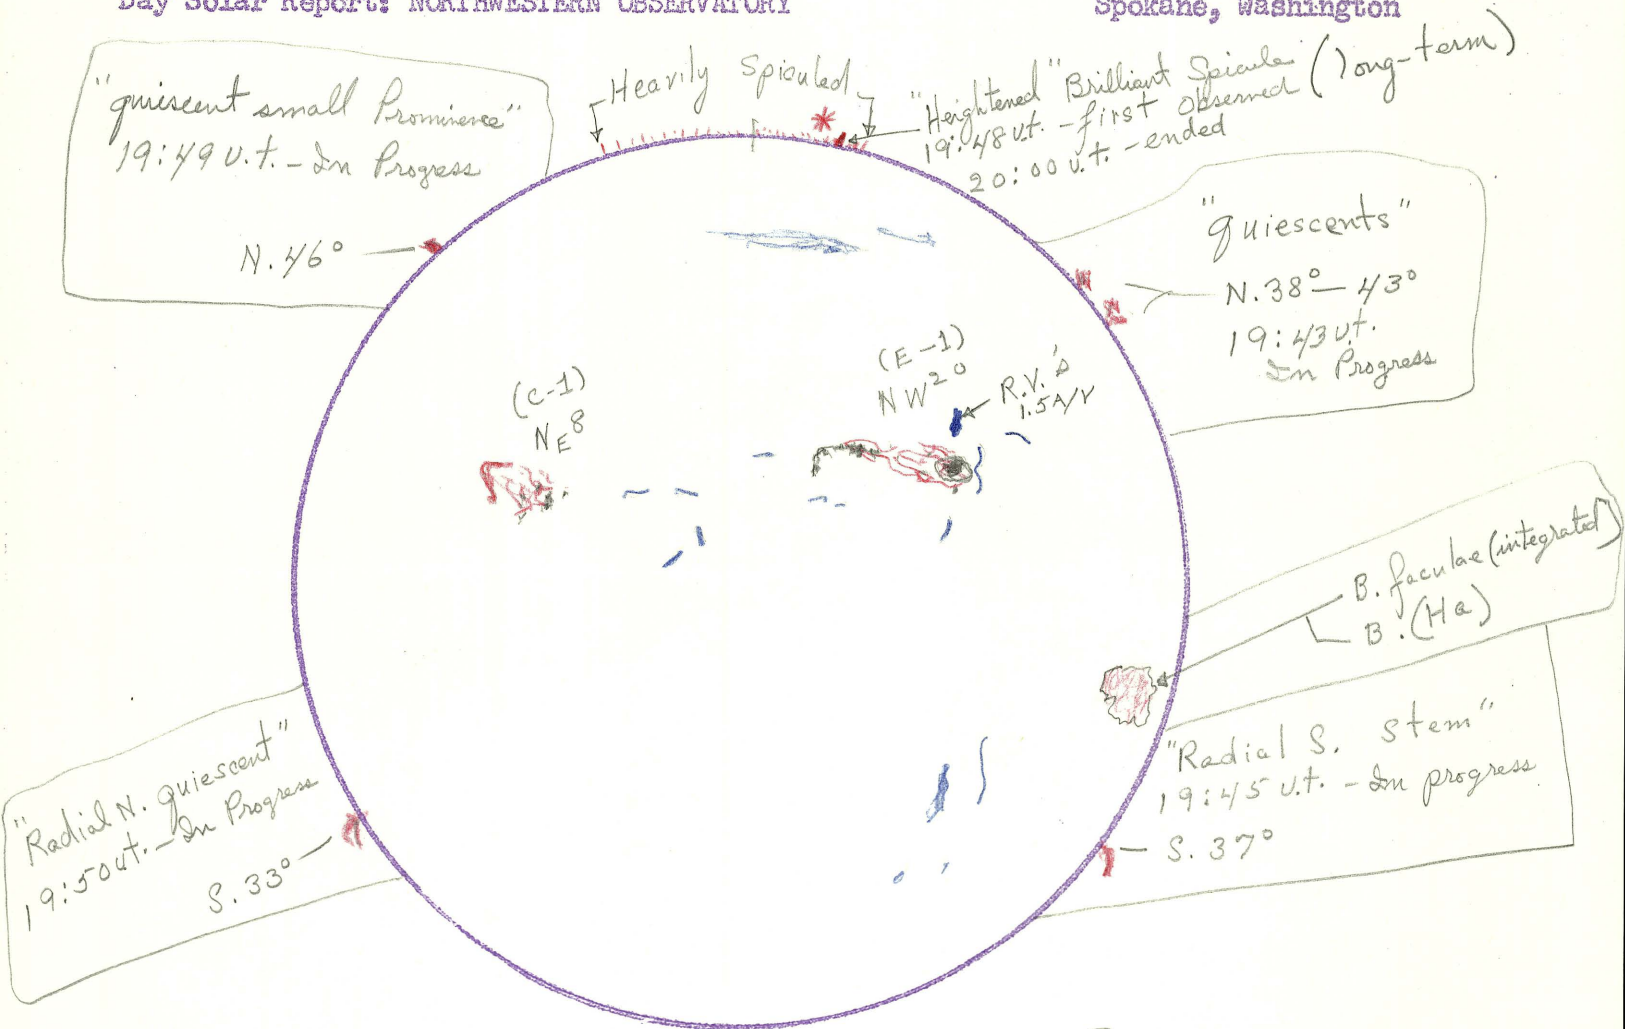 Day Solar Report: NORTHWESTERN OBSERVATORY
Spokane, Washington
"quiescent small Prominence"
19:49 u.t. - In Progress
N. 46°
Heavily Spiculed
*
"Heightened" Brilliant Spicule (long-term)
19:48 u.t. - first observed
20:00 u.t. - ended
"quiescents"
N. 38° — 43°
19:43 u.t.
In Progress
(C-1)
NE8
(E-1)
NW20
R.V.'s
1.5 A/V
B. faculae (integrated)
B. (Ha)
"Radial N. quiescent"
19:50 ut. - In Progress
S. 33°
"Radial S. Stem"
19:45 u.t. - In progress
S. 37°